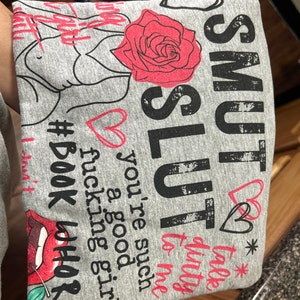 SMUT
SLUT
talk
dirty
to me
you're such
a good
fucking girl
#BOOK WHOR
I don't